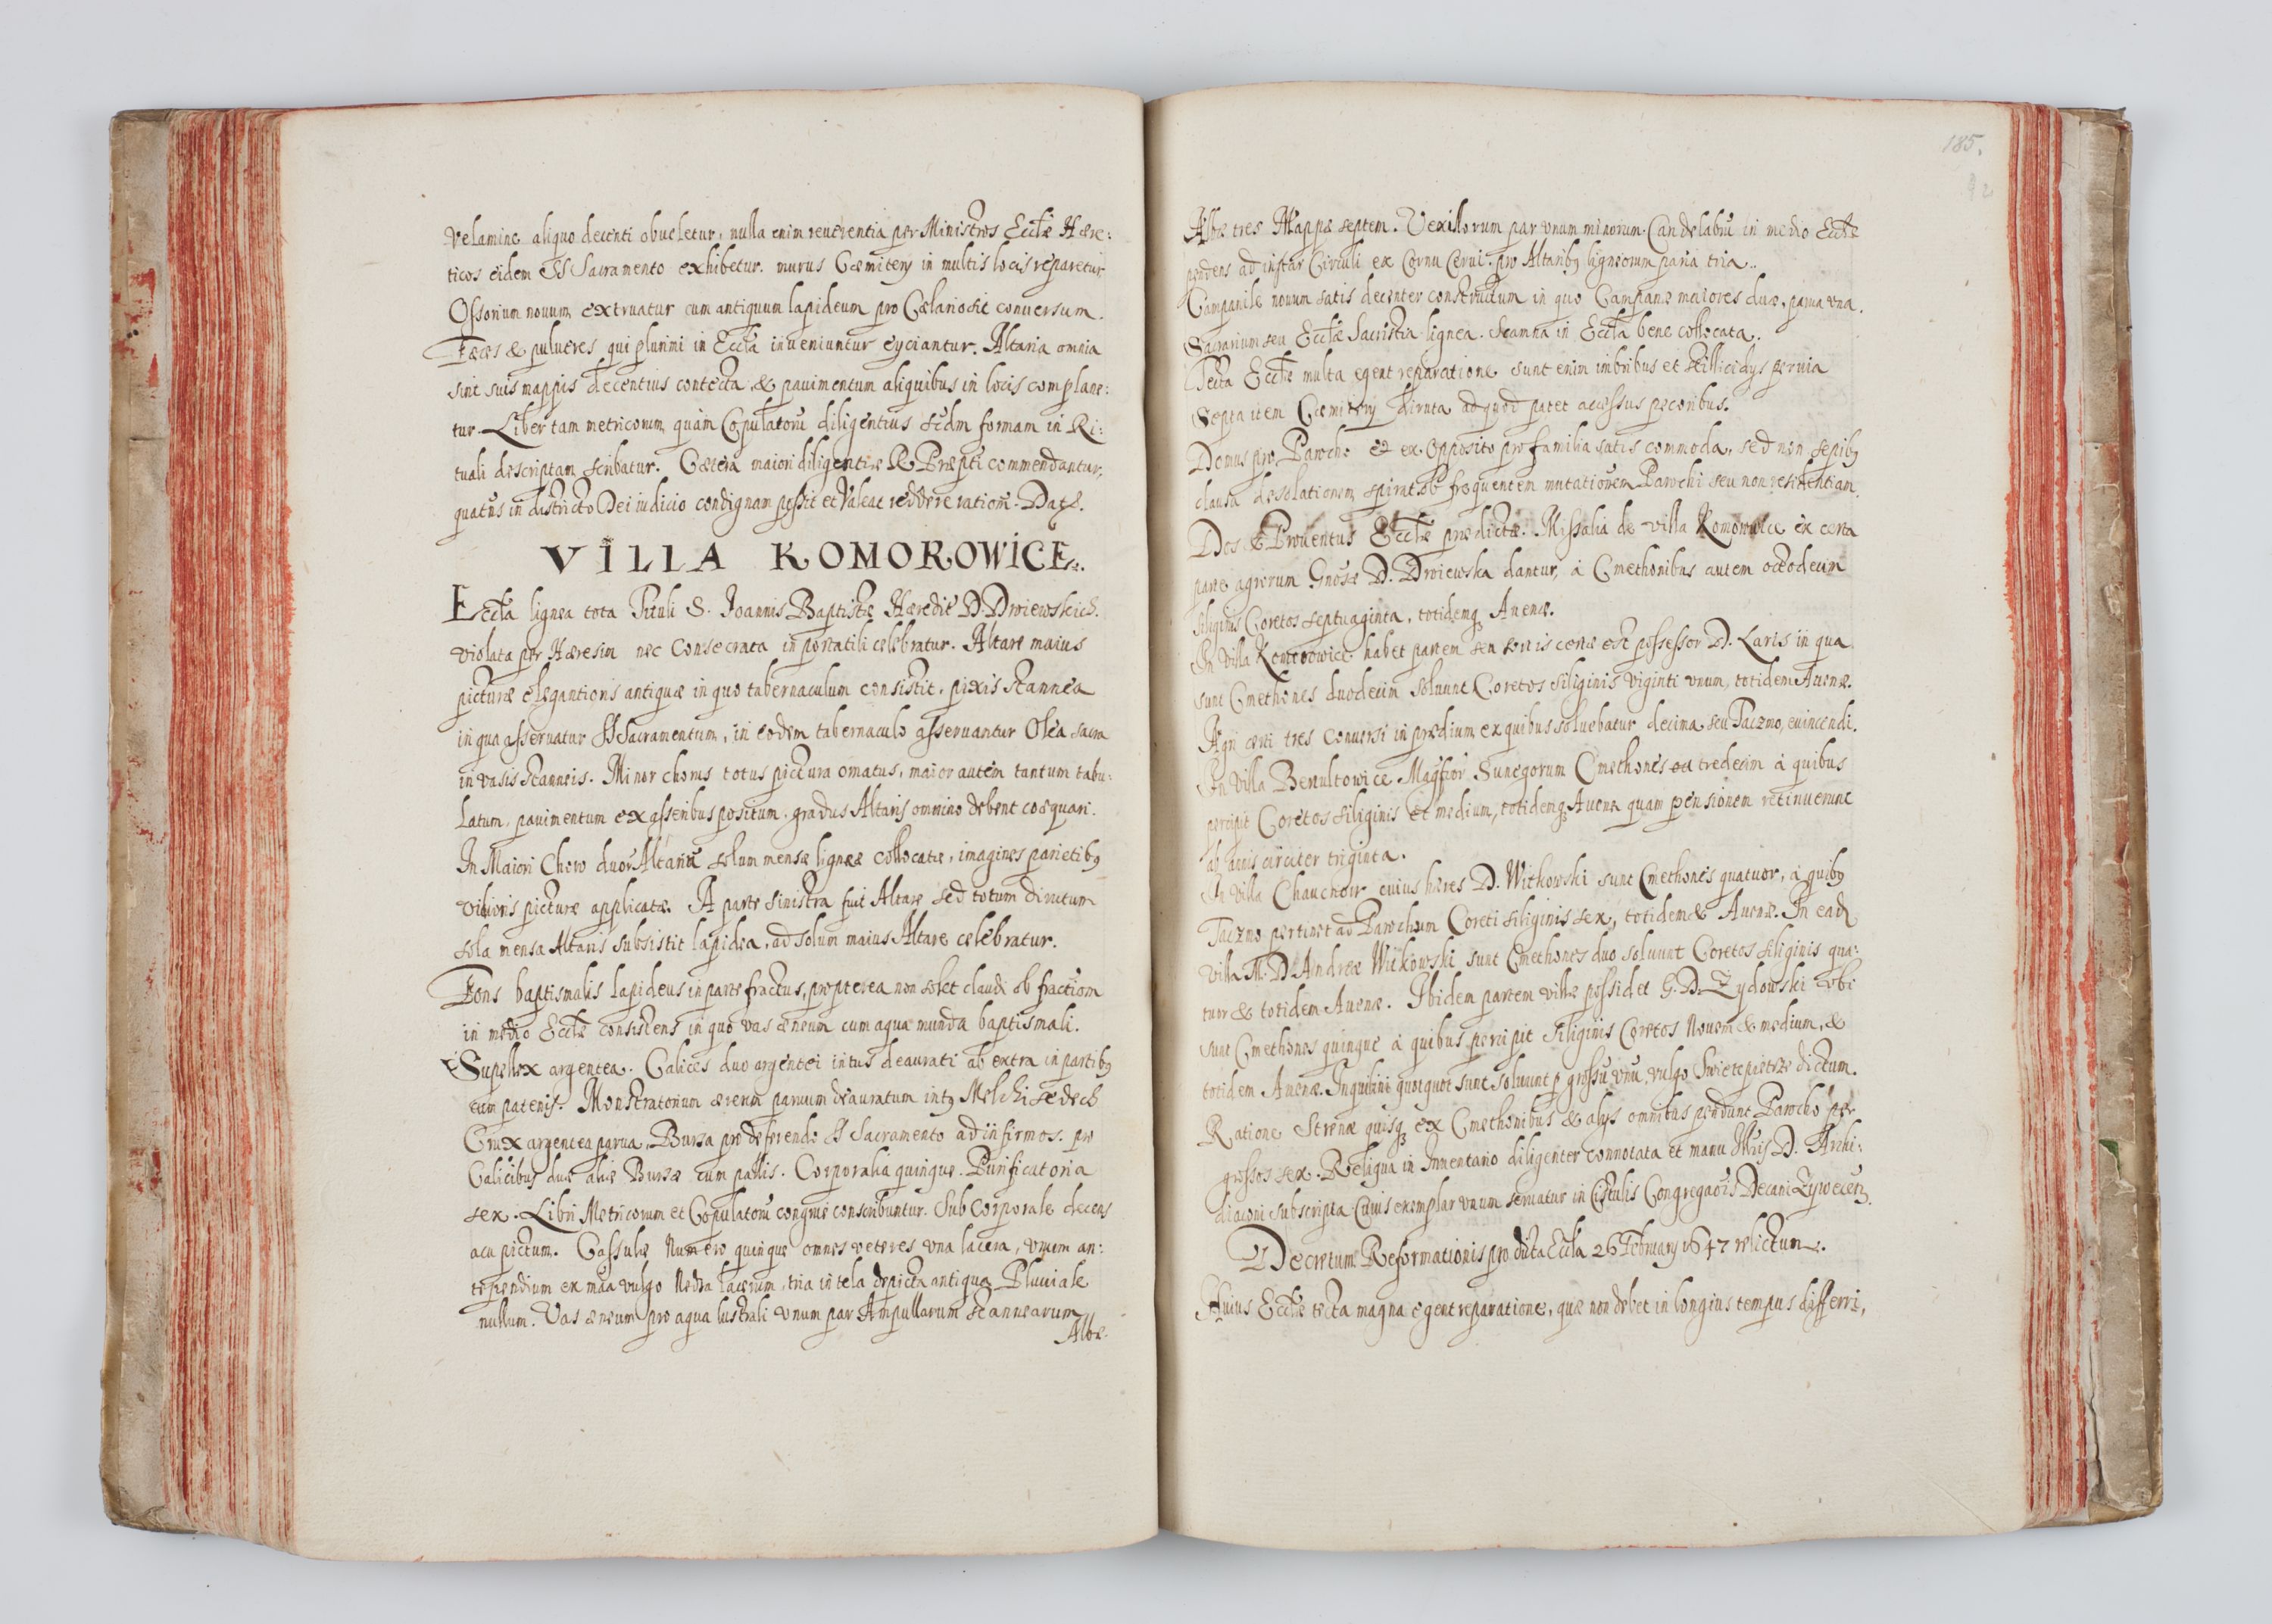 velamine aliquo decenti obueletur, nulla enim reuerentia per Ministros Eccłæ Hære:
ticos eidem SS Sacramento exhibetur. murus Cæmiterÿ in multis locis reparetur
Ossorium nouum extruatur cum antiquum lapideum pro Cælario sit conuersum.
Fæces & pulueres qui plurimi in Eccła inueniuntur eÿciantur. Altaria omnia
sint suis mappis decentius contecta & pauimentum aliquibus in locis complane:
tur. Liber tam metricorum quàm Copulatorũ diligentius scđm formam in Ri:
tuali descriptam scribatur. Cætera maiori diligentiæ R Præpti commendantur,
quatũs in districto Dei iudicio condignam possit et valeat reddere rationẽ. Datt.
VILLA KOMOROWICE.
Eccła lignea tota Tituli S. Joannis Baptistæ Hæredit D. Drwiewskich.
violata per Hæresim nec Consecrata in portatili celebratur. Altare maius
picturæ elegantioris antiquæ in quo tabernaculum consistit, pixis stannea
in qua asseruatur SS Sacramentum, in eodem tabernaculo asseruantur Olea sacra
in vasis stanneis. Minor chorus totus pictura ornatus, maior autem tantum tabu:
latum, pauimentum ex asseribus positum, gradus Altaris omnino debent coæquari.
In Maiori Choro duorᷣ Altariũ solum mensæ ligneæ collocatæ, imagines parietibꝫ
vilioris picturæ applicatæ. A parte sinistra fuit Altare sed totum dirutum
sola mensa Altaris subsistit lapidea, ad solum maius Altare celebratur.
Fons baptismalis lapideus in parte fractus, propterea non solet claudi ob fractiom̃
in medio Eccłæ consistens in quo vas æneum cum aqua munda baptismali.
Supellex argentea. Calices duo argentei intus deaurati ab extra in partibꝫ
cum patenis. Monstratorium æreum paruum deauratum intꝫ Melchisedech
Crux argentea parua, Bursa pro deferendo SS Sacramento ad infirmos. pro
Calicibus duæ aliæ Bursæ cum pallis. Corporalia quinque. Purificatoria
sex. Libri Metricorum et Copulatorũ congruè conscribuntur. Sub Corporale decens
acu pictum. Cassulæ Numero quinque omnes veteres vna lacera, vnum an:
tependium ex mãa vulgo Nedra lacerum, tria in tela depicta antiqua Pluuiale
nullum. Vas æneum pro aqua lustrali vnum par Ampullarum stannearum
Albæ.
185.
Albæ tres Mappæ septem. Vexillorum par vnum minorum. Candelabrũ in medio Eccłæ
pendens ad instar Circuli ex Cornu Cerui. pro Altaribꝫ ligneorum paria tria.
Campanile nouum satis decenter constructum in quo Campanæ maiores duæ, parua vna.
Sacrarium seu Eccłæ Sacristia lignea. Scamna in Eccła bene collocata.
Tecta Eccłæ multa egent reparatione sunt enim imbribus et stillicidÿs peruia
Septa item Cæmiterÿ diruta ad quod patet accessus pecoribus.
Domus pro Parocho et ex opposito pro familia satis commoda, sed non sepibꝫ
clausa desolationem spirat ob frequentem mutationem Parochi seu non residentiam.
Dos & Prouentus Eccłæ prædictæ. Missalia de villa Komorowice ex certa
parte agrorum Gnosæ D. Drwiewska dantur, à Cmethonibus autem octodecim
siliginis Coretos septuaginta, totidemqꝫ Auenæ.
In villa Komorowice habet partem seu sortis certæ est possessor D. Laris in qua
sunt Cmethones duodecim soluunt Coretos siliginis viginti vnum, totidem Auenæ.
Agri certi tres conuersi in prædium ex quibus soluebatur decima seu Taczmo, euincendi.
In villa Bertultowice Magfior̃ Sunegorum Cmethones tredecim à quibus
percipit Coretos siliginis et medium, totidemqꝫ Auenæ quam pensionem retinuerunt
ab annis circiter triginta.
In villa Chauchow cuius hæres D. Witkowski sunt Cmethones quatuor, à quibꝫ
Taczmo pertinet ad Parochum Coreti siliginis sex, totidem & Auenæ. In eađ
villa M. D. Andreæ Witkowski sunt Cmethones duo soluunt Coretos siliginis qua:
tuor & totidem Auenæ. Ibidem partem villæ possidet G. D. Zydowski vbi
sunt Cmethones quinque à quibus percipit Siliginis Coretos Nouem & medium, &
totidem Auenæ. Inquilini quotquot sunt soluunt ꝑ grossũ vnũ, vulgo Swietopietrze dictum.
Ratione Strenæ quisqꝫ ex Cmethonibus & alÿs omnibus pendunt Parocho per
grossos sex. Reliqua in Inuentario diligenter connotata et manu Illris D. Archi:
diaconi subscripta. Cuius exemplar vnum seruatur in Cistulis Congregaōis Decani Zÿwecen̄.
Decretum Reformationis pro dicta Eccła 26 Februarÿ 1647 relictum.
Huius Eccłæ tecta magna egent reparatione, quæ non debet in longius tempus differri,